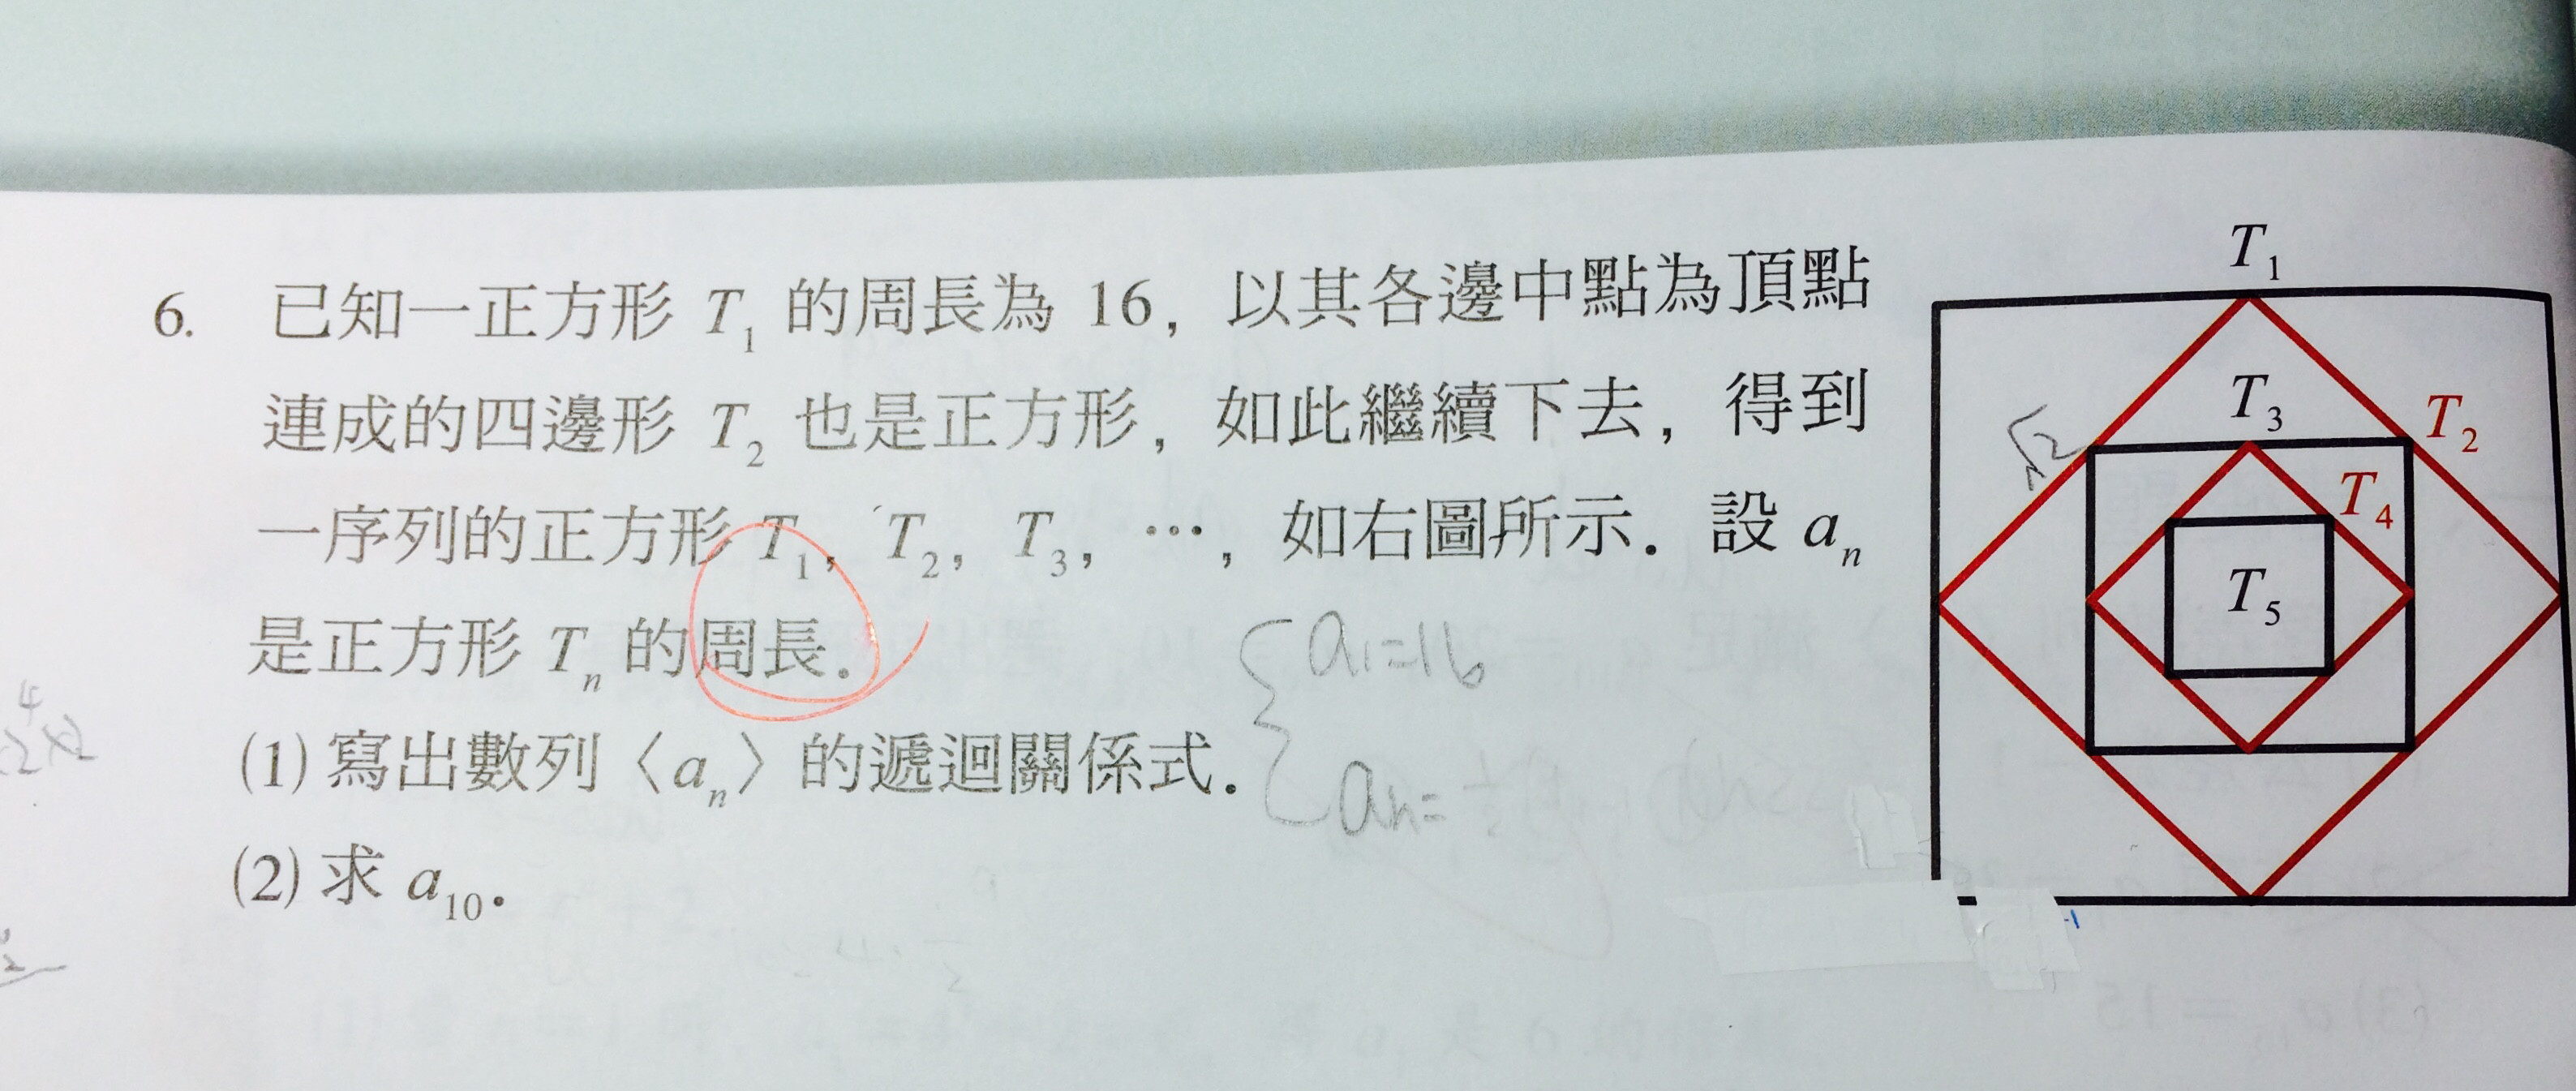 6. 已知一正方形 T₁ 的周長為 16，以其各邊中點為頂點
連成的四邊形 T₂ 也是正方形，如此繼續下去，得到
一序列的正方形 T₁，T₂，T₃，…，如右圖所示．設 aₙ
是正方形 Tₙ 的周長．
(1) 寫出數列〈aₙ〉的遞迴關係式．
(2) 求 a₁₀．
a₁=16
aₙ=
T₁
T₃
T₂
T₄
T₅
√2